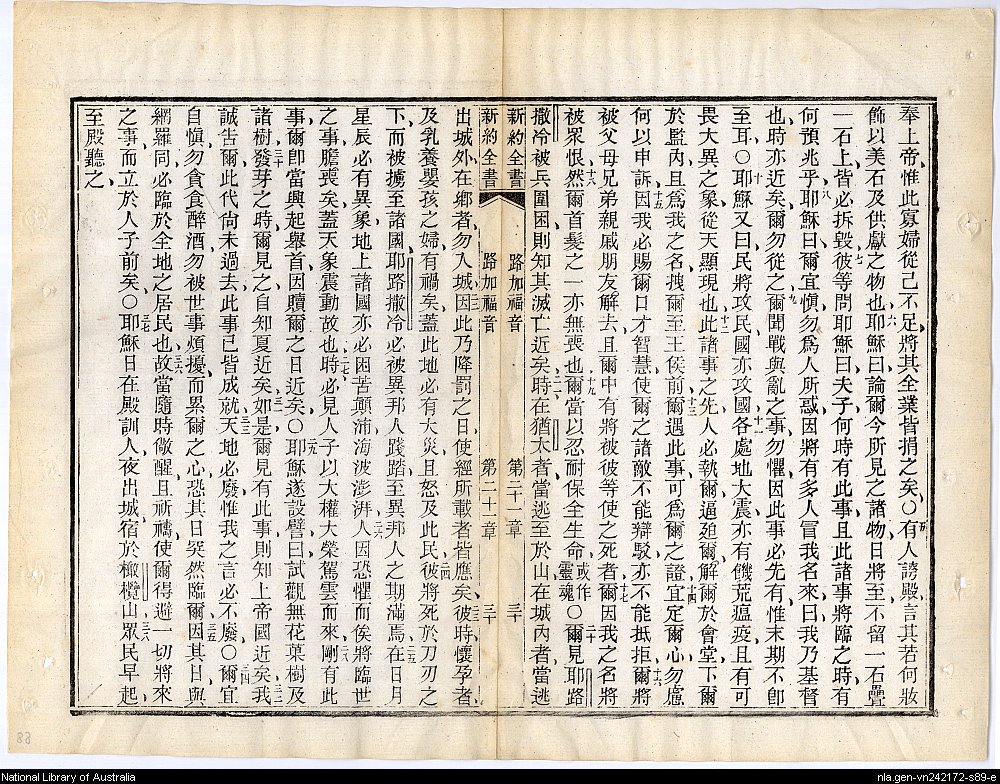 奉上帝惟此寡婦從己不足將其全業皆捐之矣○五有人謗殿言其若何妝
飾以美石及供獻之物也六耶穌曰論爾今所見之諸物日將至不留一石疊
一石上皆必拆毀七彼等問耶穌曰夫子何時有此事且此諸事將臨之時有
何預兆乎八耶穌曰爾宜愼勿爲人所惑因將有多人冒我名來曰我乃基督
也時亦近矣爾勿從之九爾聞戰與亂之事勿懼因此事必先有惟末期不卽
至耳○十耶穌又曰民將攻民國亦攻國十一各處地大震亦有饑荒瘟疫且有可
畏大異之象從天顯現也十二此諸事之先人必執爾逼廹爾解爾於會堂下爾
於監內且爲我之名拽爾至王侯前十三爾遇此事可爲爾之證十四宜定爾心勿慮
何以申訴十五因我必賜爾口才智慧使爾之諸敵不能辯駁亦不能抵拒十六爾將
被父母兄弟親戚朋友解去且爾中有將被彼等使之死者十七爾因我之名將
被衆恨十八然爾首髮之一亦無喪也十九爾當以忍耐保全生命或作靈魂○二十爾見耶路
撒冷被兵圍困則知其滅亡近矣二一時在猶太者當逃至於山在城內者當逃
新約全書 路加福音 第二十一章 三十
新約全書 路加福音 第二十一章 三十
出城外在鄉者勿入城二二因此乃降罰之日使經所載者皆應矣二三彼時懷孕者
及乳養嬰孩之婦有禍矣蓋此地必有大災且怒及此民二四彼將死於刀刃之
下而被擄至諸國耶路撒冷必被異邦人踐踏至異邦人之期滿焉二五在日月
星辰必有異象地上諸國亦必困苦顛沛海波澎湃二六人因恐懼而俟將臨世
之事膽喪矣蓋天象震動故也二七時必見人子以大權大榮駕雲而來二八剛有此
事爾卽當興起舉首因贖爾之日近矣○二九耶穌遂設譬曰試觀無花菓樹及
諸樹三十發芽之時爾見之自知夏近矣三一如是爾見有此事則知上帝國近矣三二我
誠告爾此代尚未過去此事已皆成就三三天地必廢惟我之言必不廢○三四爾宜
自愼勿貪食醉酒勿被世事煩擾而累爾之心恐其日突然臨爾三五因其日與
網羅同必臨於全地之居民也三六故當隨時儆醒且祈禱使爾得避一切將來
之事而立於人子前矣○三七耶穌日在殿訓人夜出城宿於橄欖山三八眾民早起
至殿聽之
88
National Library of Australia
nla.gen-vn242172-s89-e